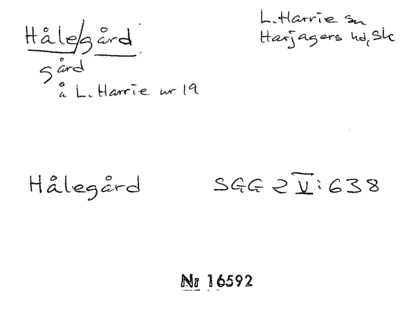 Håle/gård
L. Harrie sn
Harjagers hd, Sk
gård
å L. Harrie nr 19
Hålegård SGG 2 V: 638
Nr 16592